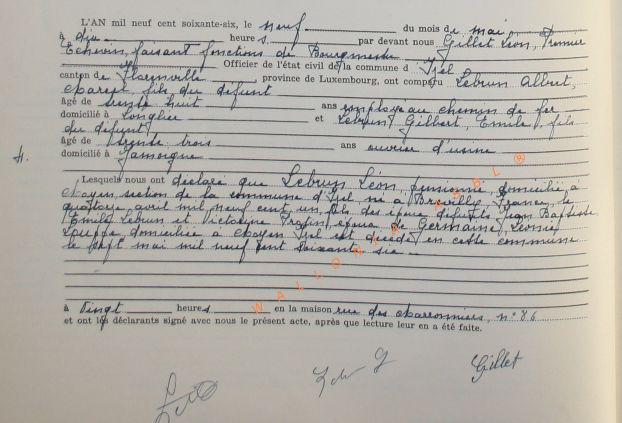 L'AN mil neuf cent soixante-six, le neuf du mois de mai
à dix heures par devant nous Gillet Léon, Premier
Echevin, faisant fonctions de Bourgmestre
Officier de l'état civil de la commune d'Izel
canton de Florenville, province de Luxembourg, ont comparu Lebrun Albert,
fils du défunt
âgé de trente huit ans employé au chemin de fer
domicilié à Longlier et Lebrun Gilbert, Emile, fils
du défunt
âgé de trente trois ans ouvrier d'usine
4.
domicilié à Jamoigne
Lesquels nous ont déclaré que Lebrun Léon, pensionné, domicilié à
section de la commune d'Izel né à Breville, France, le
quatorze avril mil neuf cent un, fils des époux défunts Jean Baptiste
Emile Lebrun et Victorine époux de Germaine, Léonie
domicilié à Izel est décédé en cette commune
le sept mai mil neuf cent soixante six
WALLONIA ASBL ®
à Vingt heures en la maison rue des charronniers, n° 86
et ont les déclarants signé avec nous le présent acte, après que lecture leur en a été faite.
Gillet